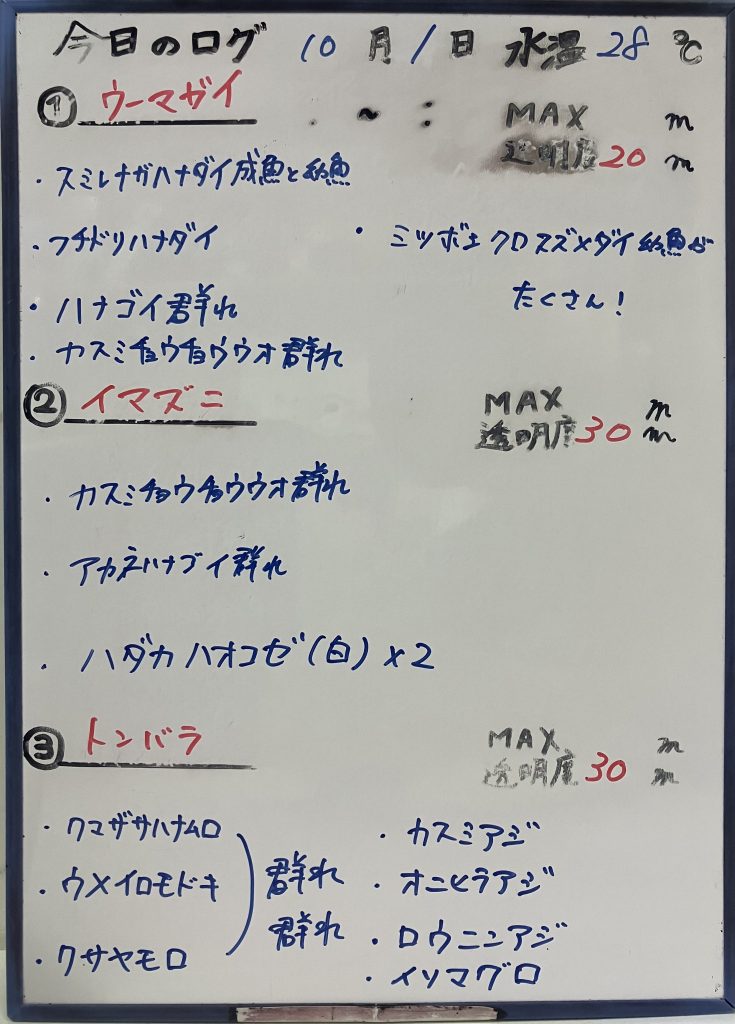 今日のログ 10月1日 水温28℃
① ウーマガイ . ~ : MAX m
透明度20m
・スミレナガハナダイ成魚と幼魚
・フチドリハナダイ
・ミツボシクロスズメダイ幼魚が
たくさん!
・ハナゴイ群れ
・カスミチョウチョウウオ群れ
② イマズニ MAX m
透明度30m
・カスミチョウチョウウオ群れ
・アカネハナゴイ群れ
・ハダカハオコゼ(白)×2
③ トンバラ MAX m
透明度30m
・クマザサハナムロ
・ウメイロモドキ 群れ
群れ
・クサヤモロ
・カスミアジ
・オニヒラアジ
・ロウニンアジ
・イソマグロ